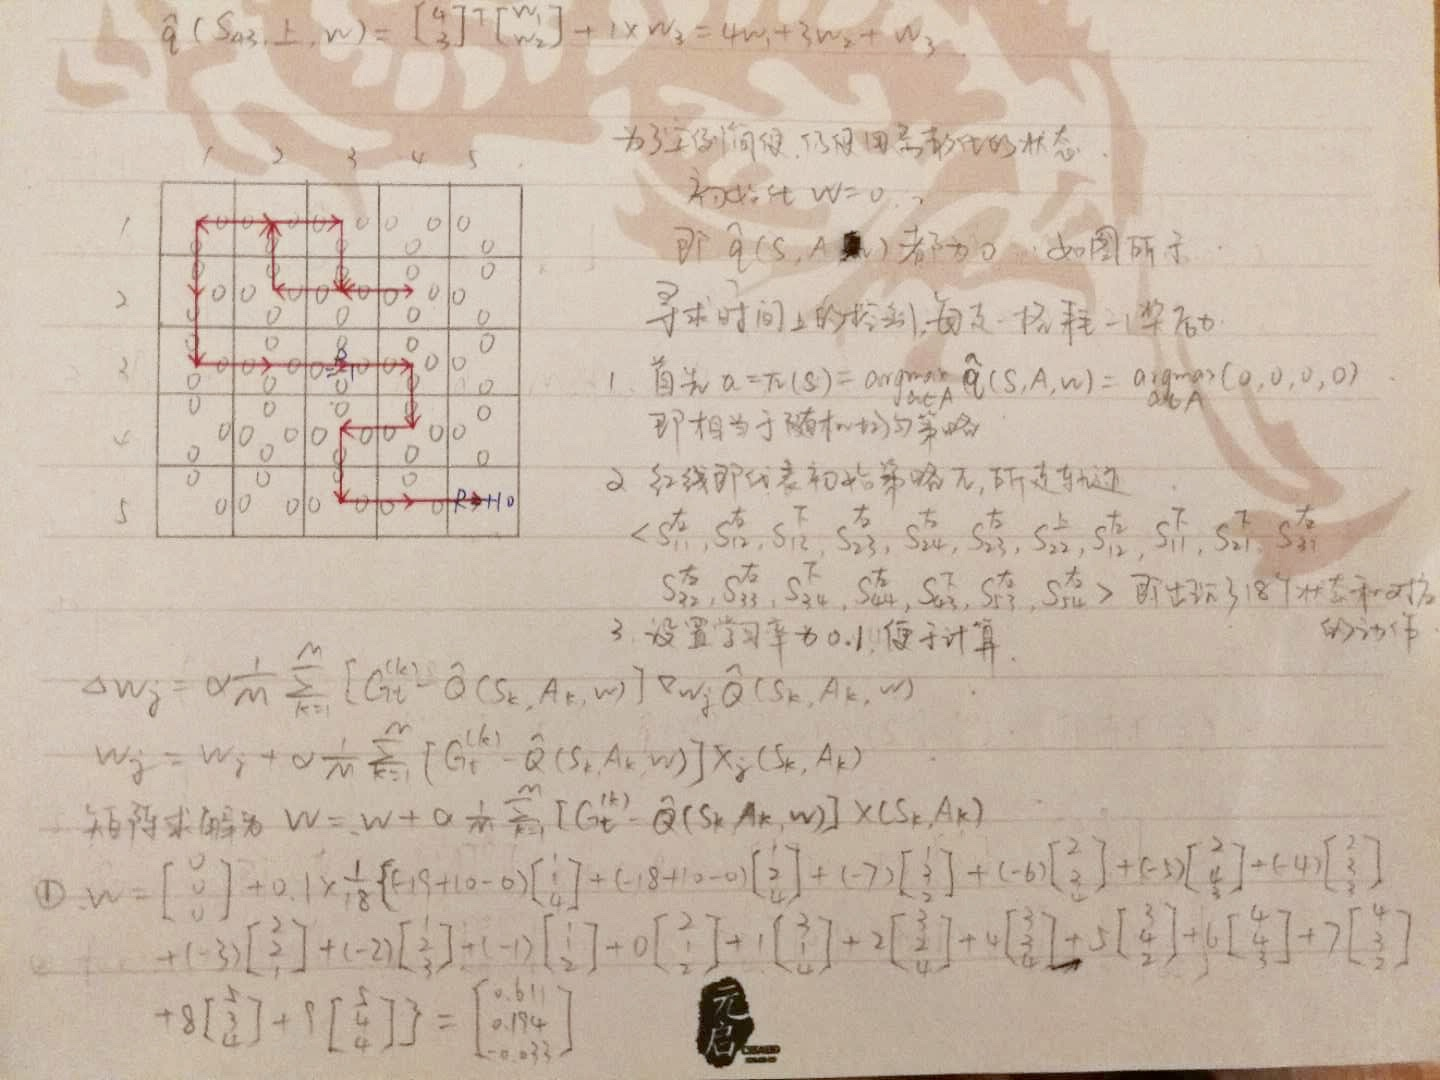 q̂(S₄₃,上,w) = [4 3]ᵀ[w₁ w₂] + 1×w₃ = 4w₁+3w₂+w₃
初始化 W=0
即 q̂(S,A,w)都为0 如图所示
1 2 3 4 5
1 0 0 0 0 0 0 0 0
2 0 0 0 0 0 0
3 0 0 0 0 0
4 0 0 0 0 0 0 0
5 0 0 0 0 0 0 0 R=+10
1. 首先 a=π(s)= argmax a∈A q̂(S,A,w)= argmax a∈A (0,0,0,0)
即相当于随机均匀策略
2 红线即代表初始策略π,所走轨迹
<S₁₁右, S₁₂右, S₁₃下, S₂₃右, S₂₄左, S₂₃左, S₂₂上, S₁₂左, S₁₁下, S₂₁下, S₃₁右
S₃₂右, S₃₃右, S₃₄下, S₄₄左, S₄₃下, S₅₃右, S₅₄右> 即出现了18个状态和对应的动作
3. 设置学习率为0.1,便于计算.
ΔWⱼ = α 1/M Σ_{k=1}^{M} [G_t^{(k)} - Q̂(S_k, A_k, w)] ∇wⱼ Q̂(S_k, A_k, w)
Wⱼ = Wⱼ + α 1/M Σ_{k=1}^{M} [G_t^{(k)} - Q̂(S_k, A_k, w)] Xⱼ(S_k, A_k)
矩阵求解为 W = W + α 1/M Σ_{k=1}^{M} [G_t^{(k)} - Q̂(S_k, A_k, w)] X(S_k, A_k)
① W = [0 0 0] + 0.1×1/18 {(-19+10-0)[1 1 4] + (-18+10-0)[1 2 4] + (-7)[1 3 2] + (-6)[2 3 4] + (-5)[2 4 3] + (-4)[2 3 3]
+(-3)[2 2 1] + (-2)[1 2 3] + (-1)[1 1 2] + 0[2 1 2] + 1[3 1 4] + 2[3 2 4] + 4[3 3 4] + 5[3 4 2] + 6[4 4 3] + 7[4 3 2]
+8[5 3 4] + 9[5 4 4]} = [0.611 0.194 -0.033]
元启